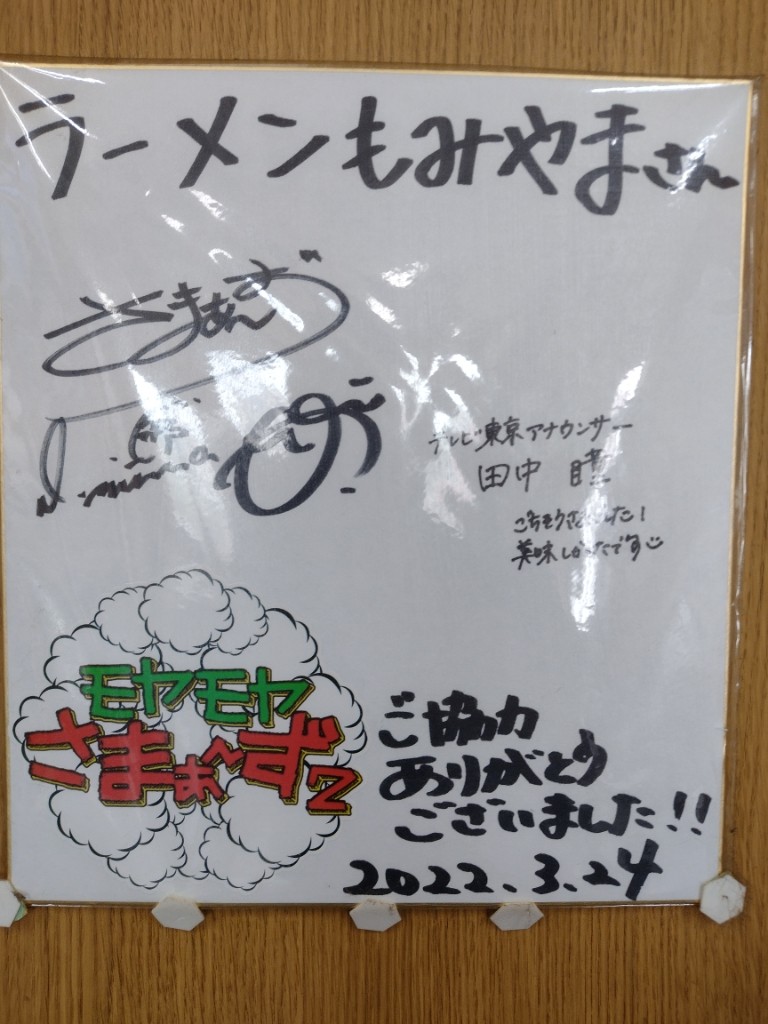 ラーメンもみやまさん
さまぁ〜ず
テレビ東京アナウンサー
田中 瞳
ごちそうさまでした！
美味しかったです
モヤモヤ
さまぁ〜ず2
ご協力
ありがとう
ございました!!
2022.3.24